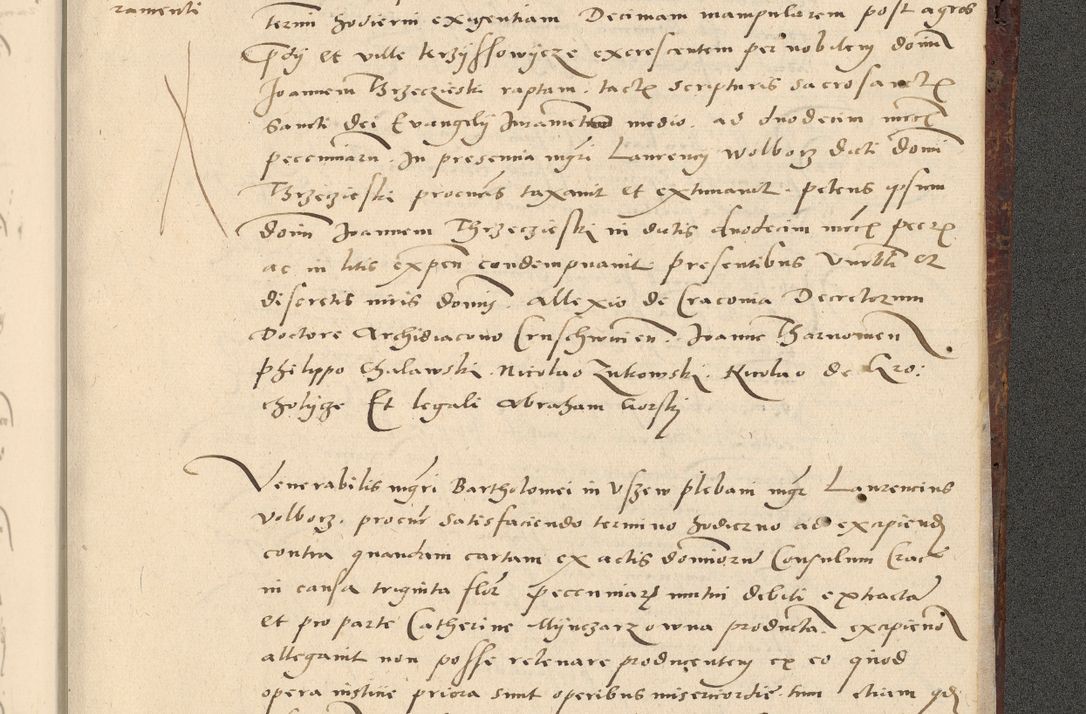 ramenti
termi hodierni exigentiam Decimam manipularem post agros
p̄dij et ville krzyssowycze excrescentem per nobilem domi
Joannem Brzeczieski raptam, tactis scripturis sacrosanctis
sancti dei Evangelij Juramento medio ad duodecim mrcis
pecuniaru In presencia mgri Laurencij Wolborz dicti domi
Brzezieski procuris taxavit et extimavit, petens ipsum
domi Joannem Brzeczieski in dictis duodecim mrcis
ac in litis expen condempnavit presentibus Vnrbli et
discretis viris domis Allexio de Cracovia Decretorum
Doctore Archidiacono Cruschwicien Joanne Tharnowen
Philippo Chalawski Nicolao Zukowski Nicolao de Kro:
cholycze Et legali Abraham Gorski
Venerabilis mgri Bartholomei in Vszew plebani mgr Laurencius
Volborz procur satisfaciendo termino hodierno ad excipiend
contra quandam cartam ex actis dominoru Consulum Crac
in causa triginta flor pecuniar mutui debiti extracta
et pro parte Catherine Mynczarzowna producta excipiendo
allegavit non posse relevare producentem ex eo quod
opera istius priora sunt operibus misericordie tum etiam qd